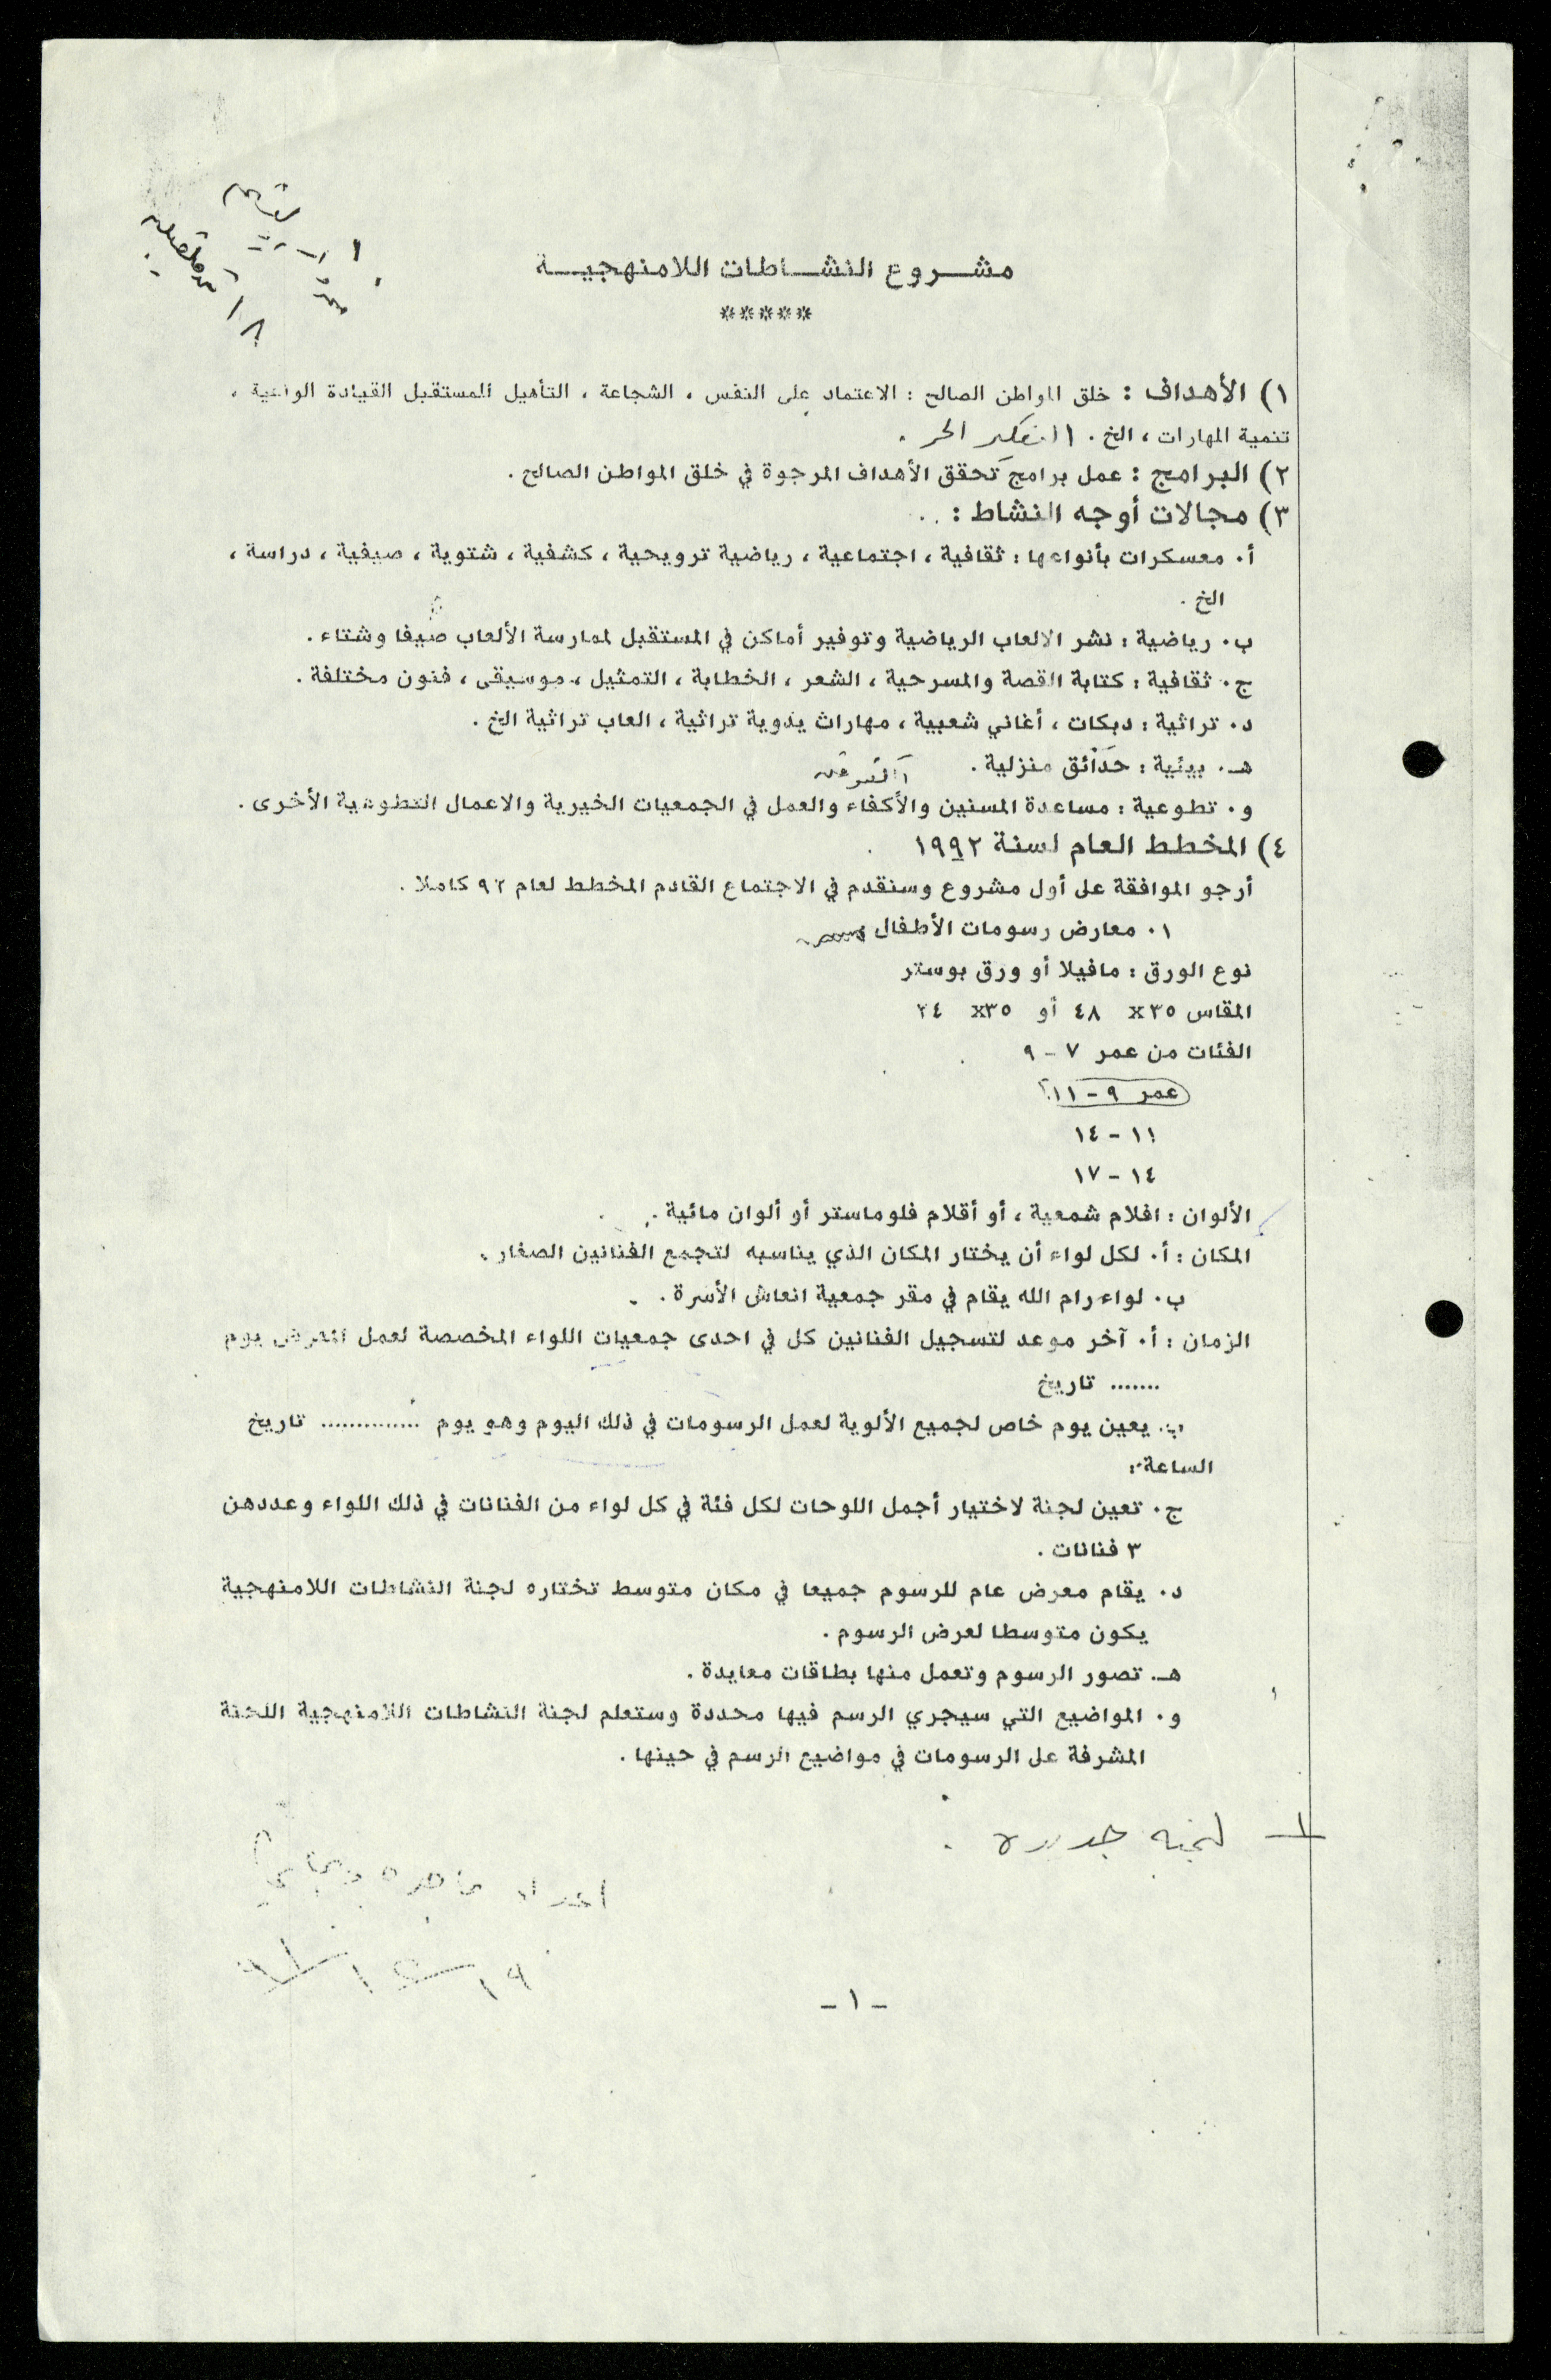 مشـــروع النشـــاطات اللامنهجيـــة
*****
١) الأهداف : خلق المواطن الصالح : الاعتماد على النفس ، الشجاعة ، التأهيل للمستقبل القيادة الواعية ،
تنمية المهارات ، الخ . التفكير الحر .
٢) البرامج : عمل برامج تحقق الأهداف المرجوة في خلق المواطن الصالح .
٣) مجالات أوجه النشاط :
أ. معسكرات بأنواعها : ثقافية ، اجتماعية ، رياضية ترويحية ، كشفية ، شتوية ، صيفية ، دراسة ،
الخ .
ب. رياضية : نشر الالعاب الرياضية وتوفير أماكن في المستقبل لممارسة الألعاب صيفا وشتاء .
ج. ثقافية : كتابة القصة والمسرحية ، الشعر ، الخطابة ، التمثيل ، موسيقى ، فنون مختلفة .
د. تراثية : دبكات ، أغاني شعبية ، مهارات يدوية تراثية ، العاب تراثية الخ .
هـ. بيئية : حدائق منزلية .
و. تطوعية : مساعدة المسنين والأكفاء والعمل في الجمعيات الخيرية والاعمال التطوعية الأخرى .
٤) المخطط العام لسنة ١٩٩٢
أرجو الموافقة على أول مشروع وسنقدم في الاجتماع القادم المخطط لعام ٩٢ كاملا .
١. معارض رسومات الأطفال
نوع الورق : مافيلا أو ورق بوستر
المقاس ٣٥x ٤٨ أو ٣٥x ٢٤
الفئات من عمر ٧ - ٩
عمر ٩ - ١١
١١ - ١٤
١٤ - ١٧
الألوان : اقلام شمعية ، أو أقلام فلوماستر أو ألوان مائية .
المكان : أ. لكل لواء أن يختار المكان الذي يناسبه لتجمع الفنانين الصغار .
ب. لواء رام الله يقام في مقر جمعية انعاش الأسرة .
الزمان : أ. آخر موعد لتسجيل الفنانين كل في احدى جمعيات اللواء المخصصة لعمل المعرض يوم
....... تاريخ
ب. يعين يوم خاص لجميع الألوية لعمل الرسومات في ذلك اليوم وهو يوم .............. تاريخ
الساعة :
ج. تعين لجنة لاختيار أجمل اللوحات لكل فئة في كل لواء من الفنانات في ذلك اللواء وعددهن
٣ فنانات .
د. يقام معرض عام للرسوم جميعا في مكان متوسط تختاره لجنة النشاطات اللامنهجية
يكون متوسطا لعرض الرسوم .
هـ. تصور الرسوم وتعمل منها بطاقات معايدة .
و. المواضيع التي سيجري الرسم فيها محددة وستعلم لجنة النشاطات اللامنهجية اللجنة
المشرفة على الرسومات في مواضيع الرسم في حينها .
لجنه جديده .
- ١ -